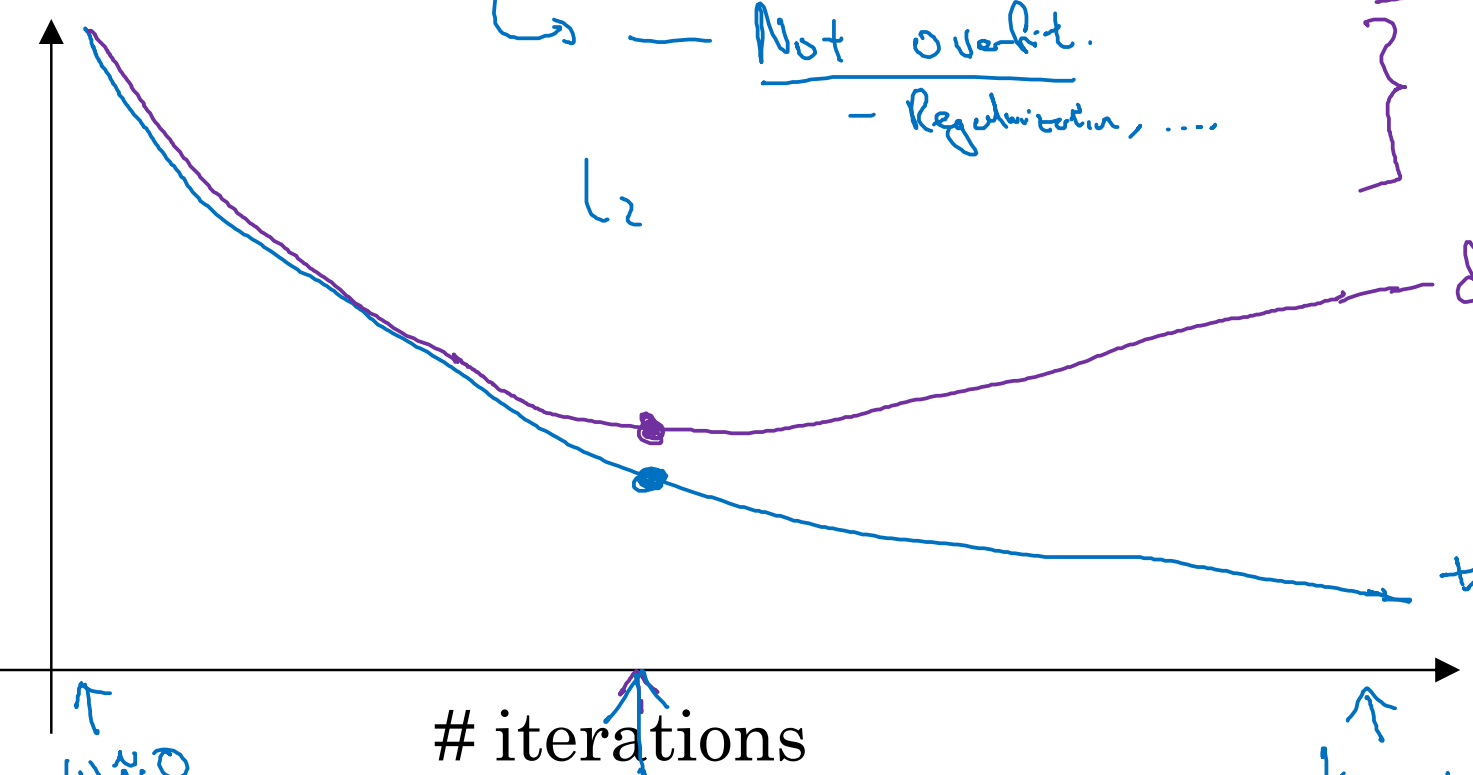 Not overfit.
- Regularization, ....
L2
# iterations
w≈0